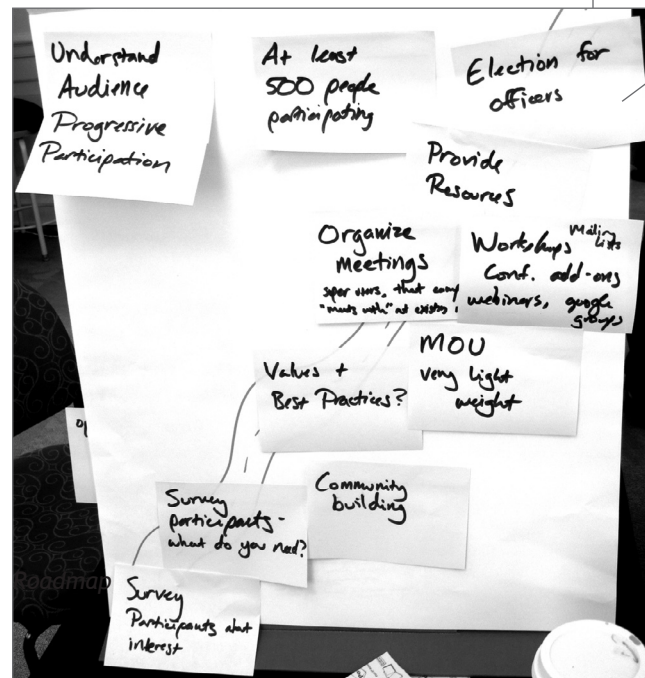 Understand
Audience
Progressive
Participation
At least
500 people
participating
Election for
officers
Provide
Resources
Organize
meetings
super users, that
"meets with" at existing
Workshops Mailing
Lists
Conf. add-ons
webinars, google
groups
MOU
very light
weight
Values +
Best Practices?
Community
building
Survey
participants-
what do you need?
Survey
Participants about
interest
Roadmap